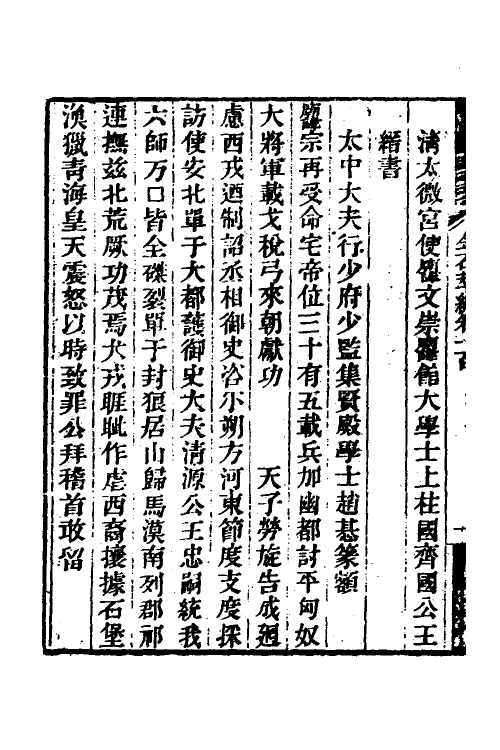 清太微宮使弘文崇玄館大學士上柱國齊國公王
縉書
太中大夫行少府少監集賢殿學士趙惎篆額
睿宗再受命宅帝位三十有五載兵加幽都討平匈奴
大將軍載戈稅弓來朝獻功　天子勞旋告成廻
慮西戎迺制詔丞相御史洽尓朔方河東節度支度採
訪使安北單于大都護御史大夫清源公王忠嗣統我
六師万口皆全磔裂單于封狼居山歸馬漠南列郡祁
連撫茲北荒厥功茂焉犬戎睚眦作虐西裔攘據石堡
漁獵青海皇天震怒以時致罪公拜稽首敢留